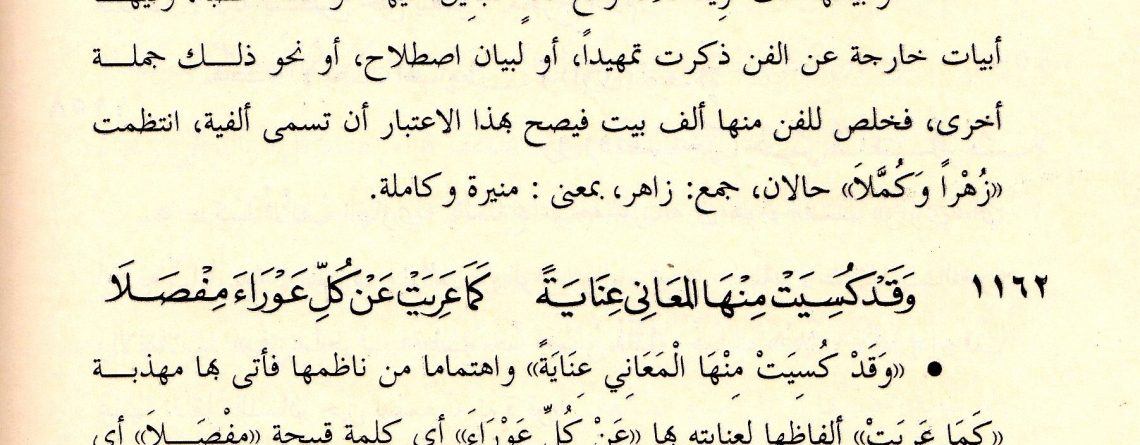 أبيات خارجة عن الفن ذكرت تمهيداً، أو لبيان اصطلاح، أو نحو ذلـــك جملـــة
أخرى، فخلص للفن منها ألف بيت فيصح بهذا الاعتبار أن تسمى ألفية، انتظمت
«زُهْراً وَكُمَّلاَ» حالان، جمع: زاهر، بمعنى : منيرة وكاملة.
١١٦٢ وَقَدْ كُسِيَتْ مِنْهَا المَعَانِي عِنَايَةً كَمَا عَرِيَتْ عَنْ كُلِّ عَوْرَاءَ مِفْصَلَا
● «وَقَدْ كُسِيَتْ مِنْهَا الْمَعَانِي عِنَايَةً» واهتماما من ناظمها فأتى بها مهذبـــة
«كَمَا عَرِيَتْ» ألفاظها لعنايته بها «عَنْ كُلِّ عَوْرَاءَ» أي كلمة قبيحة «مِفْصَـــلاَ» أي